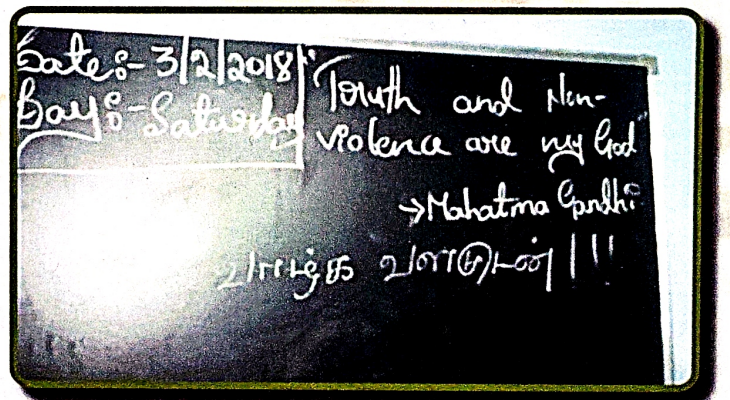 Date:- 3/2/2018
Day:- Saturday
"Truth and Non-
violence are my God"
→Mahatma Gandhi
வாழ்க வளமுடன்!!!